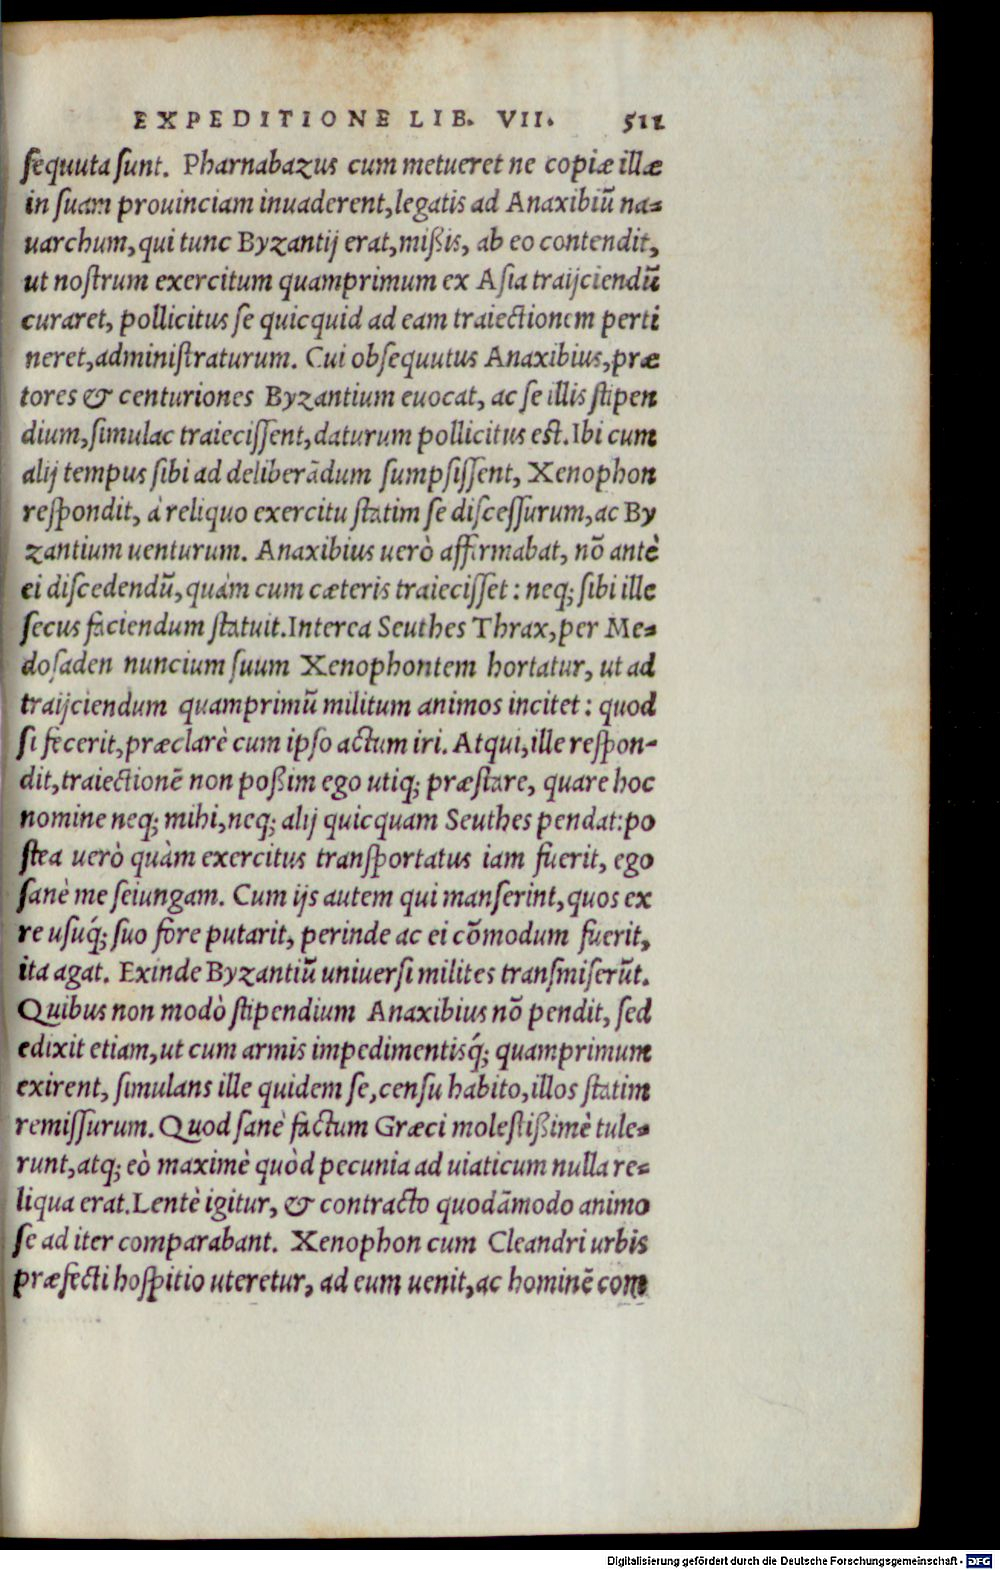 EXPEDITIONE LIB. VII. 511
sequuta sunt. Pharnabazus cum metueret ne copiæ illæ
in suam prouinciam inuaderent, legatis ad Anaxibiũ na-
uarchum, qui tunc Byzantij erat, mißis, ab eo contendit,
ut nostrum exercitum quamprimum ex Asia traijciendũ
curaret, pollicitus se quicquid ad eam traiectionem perti
neret, administraturum. Cui obsequutus Anaxibius, præ
tores & centuriones Byzantium euocat, ac se illis stipen
dium, simulac traiecissent, daturum pollicitus est. Ibi cum
alij tempus sibi ad deliberãdum sumpsissent, Xenophon
respondit, à reliquo exercitu statim se discessurum, ac By
zantium uenturum. Anaxibius uerò affirmabat, nõ antè
ei discedendũ, quàm cum cæteris traiecisset: neq; sibi ille
secus faciendum statuit. Interea Seuthes Thrax, per Me-
dosaden nuncium suum Xenophontem hortatur, ut ad
traijciendum quamprimũ militum animos incitet: quod
si fecerit, præclarè cum ipso actum iri. Atqui, ille respon-
dit, traiectionẽ non poßim ego utiq; præstare, quare hoc
nomine neq; mihi, neq; alij quicquam Seuthes pendat: po
stea uerò quàm exercitus transportatus iam fuerit, ego
sanè me seiungam. Cum ijs autem qui manserint, quos ex
re usuq́; suo fore putarit, perinde ac ei cõmodum fuerit,
ita agat. Exinde Byzantiũ uniuersi milites transmiserũt.
Quibus non modò stipendium Anaxibius nõ pendit, sed
edixit etiam, ut cum armis impedimentisq́; quamprimum
exirent, simulans ille quidem se, censu habito, illos statim
remissurum. Quod sanè factum Græci molestißimè tule-
runt, atq; eò maximè quòd pecunia ad uiaticum nulla re-
liqua erat. Lentè igitur, & contracto quodãmodo animo
se ad iter comparabant. Xenophon cum Cleandri urbis
præfecti hospitio uteretur, ad eum uenit, ac hominẽ com
Digitalisierung gefördert durch die Deutsche Forschungsgemeinschaft - DFG